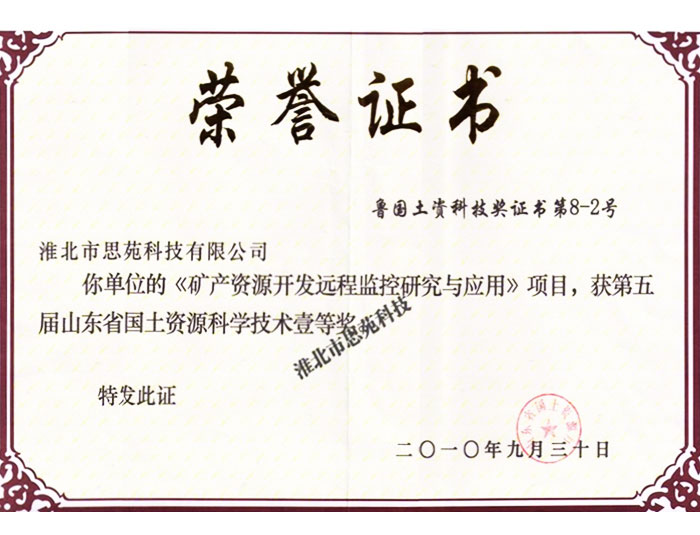 荣誉证书
鲁国土资科技奖证书第8-2号
淮北市思苑科技有限公司
你单位的《矿产资源开发远程监控研究与应用》项目，获第五
届山东省国土资源科学技术壹等奖
淮北市思苑科技
特发此证
二〇一〇年九月三十日